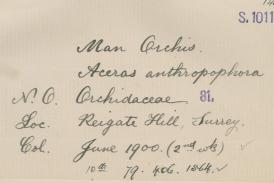 S. 1011
Man Orchis.
Aceras anthropophora
N. O. Orchidaceae 81.
Loc. Reigate Hill, Surrey.
Col. June 1900. (2nd wk)
10th 79. 406. 1864.